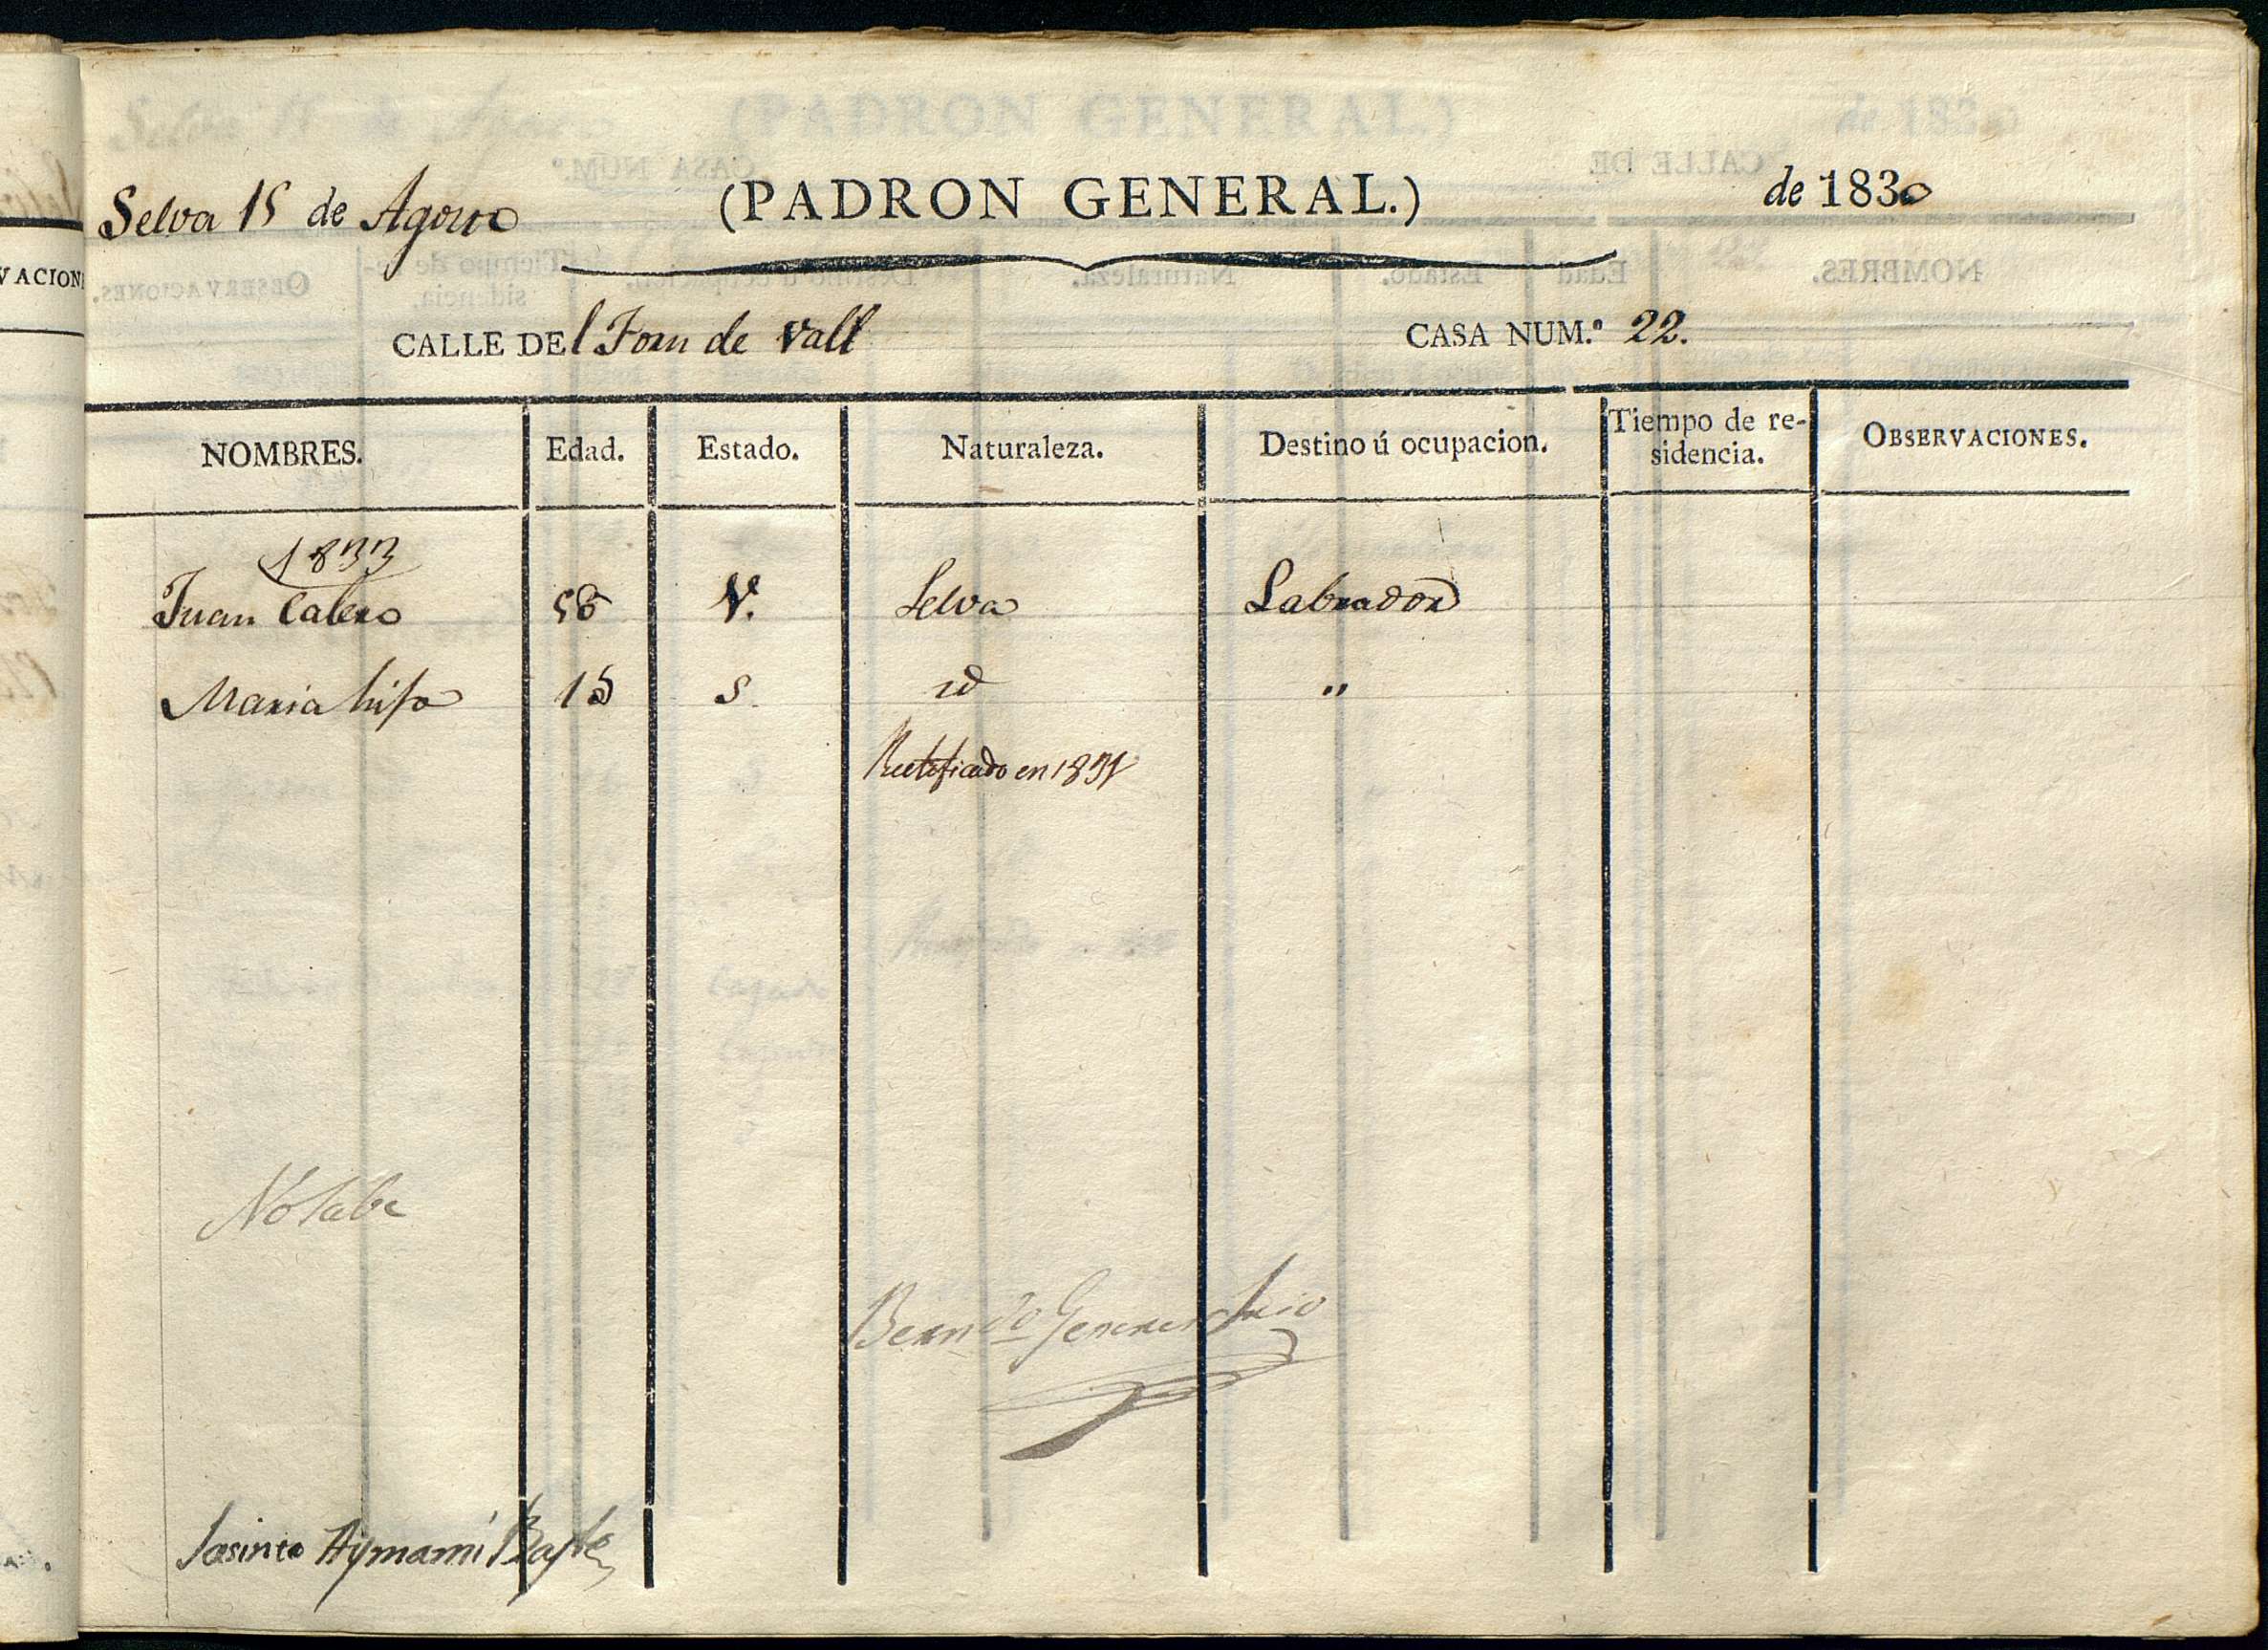 Selva 15 de Agosto (PADRON GENERAL.) de 1830
CALLE DEl Forn de Vall CASA NUM.º 22.
NOMBRES. Edad. Estado. Naturaleza. Destino ú ocupacion. Tiempo de re-
sidencia. OBSERVACIONES.
1833
Juan Calero 58 V. Selva Labrador
Maria hija 15 S. id "
Rectificado en 1831
Jasinto Aymamí Bayle